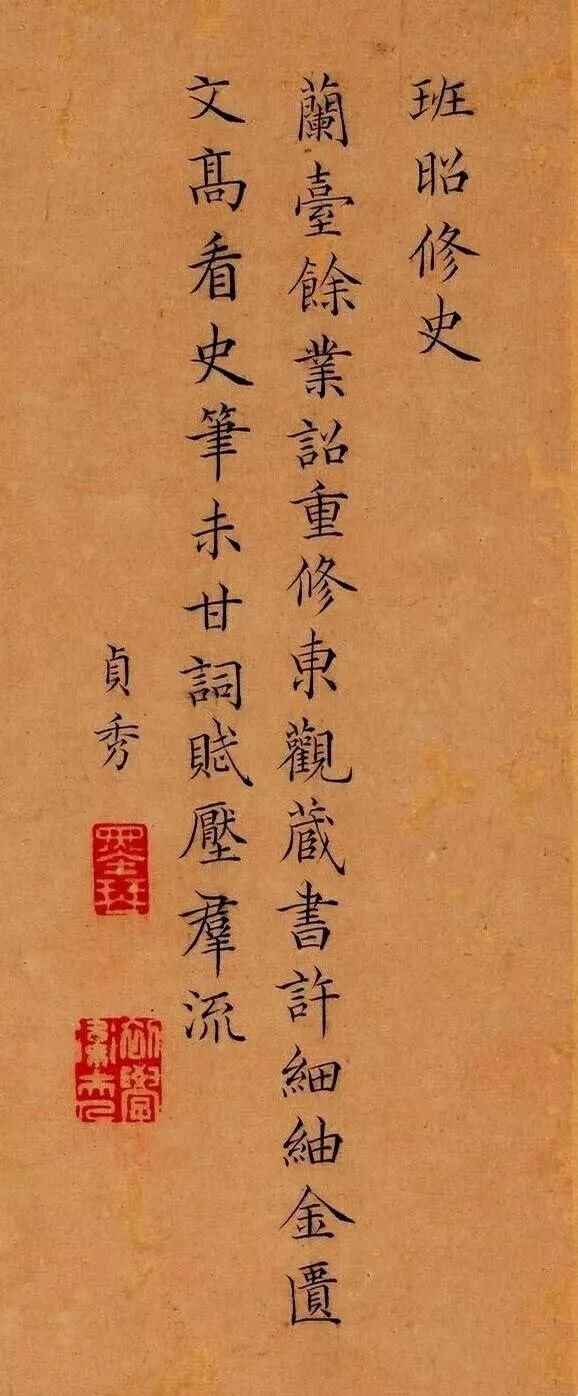 班昭修史
蘭臺餘業詔重修東觀蔵書許細紬金匱
文髙看史筆未甘詞賦壓羣流
貞秀